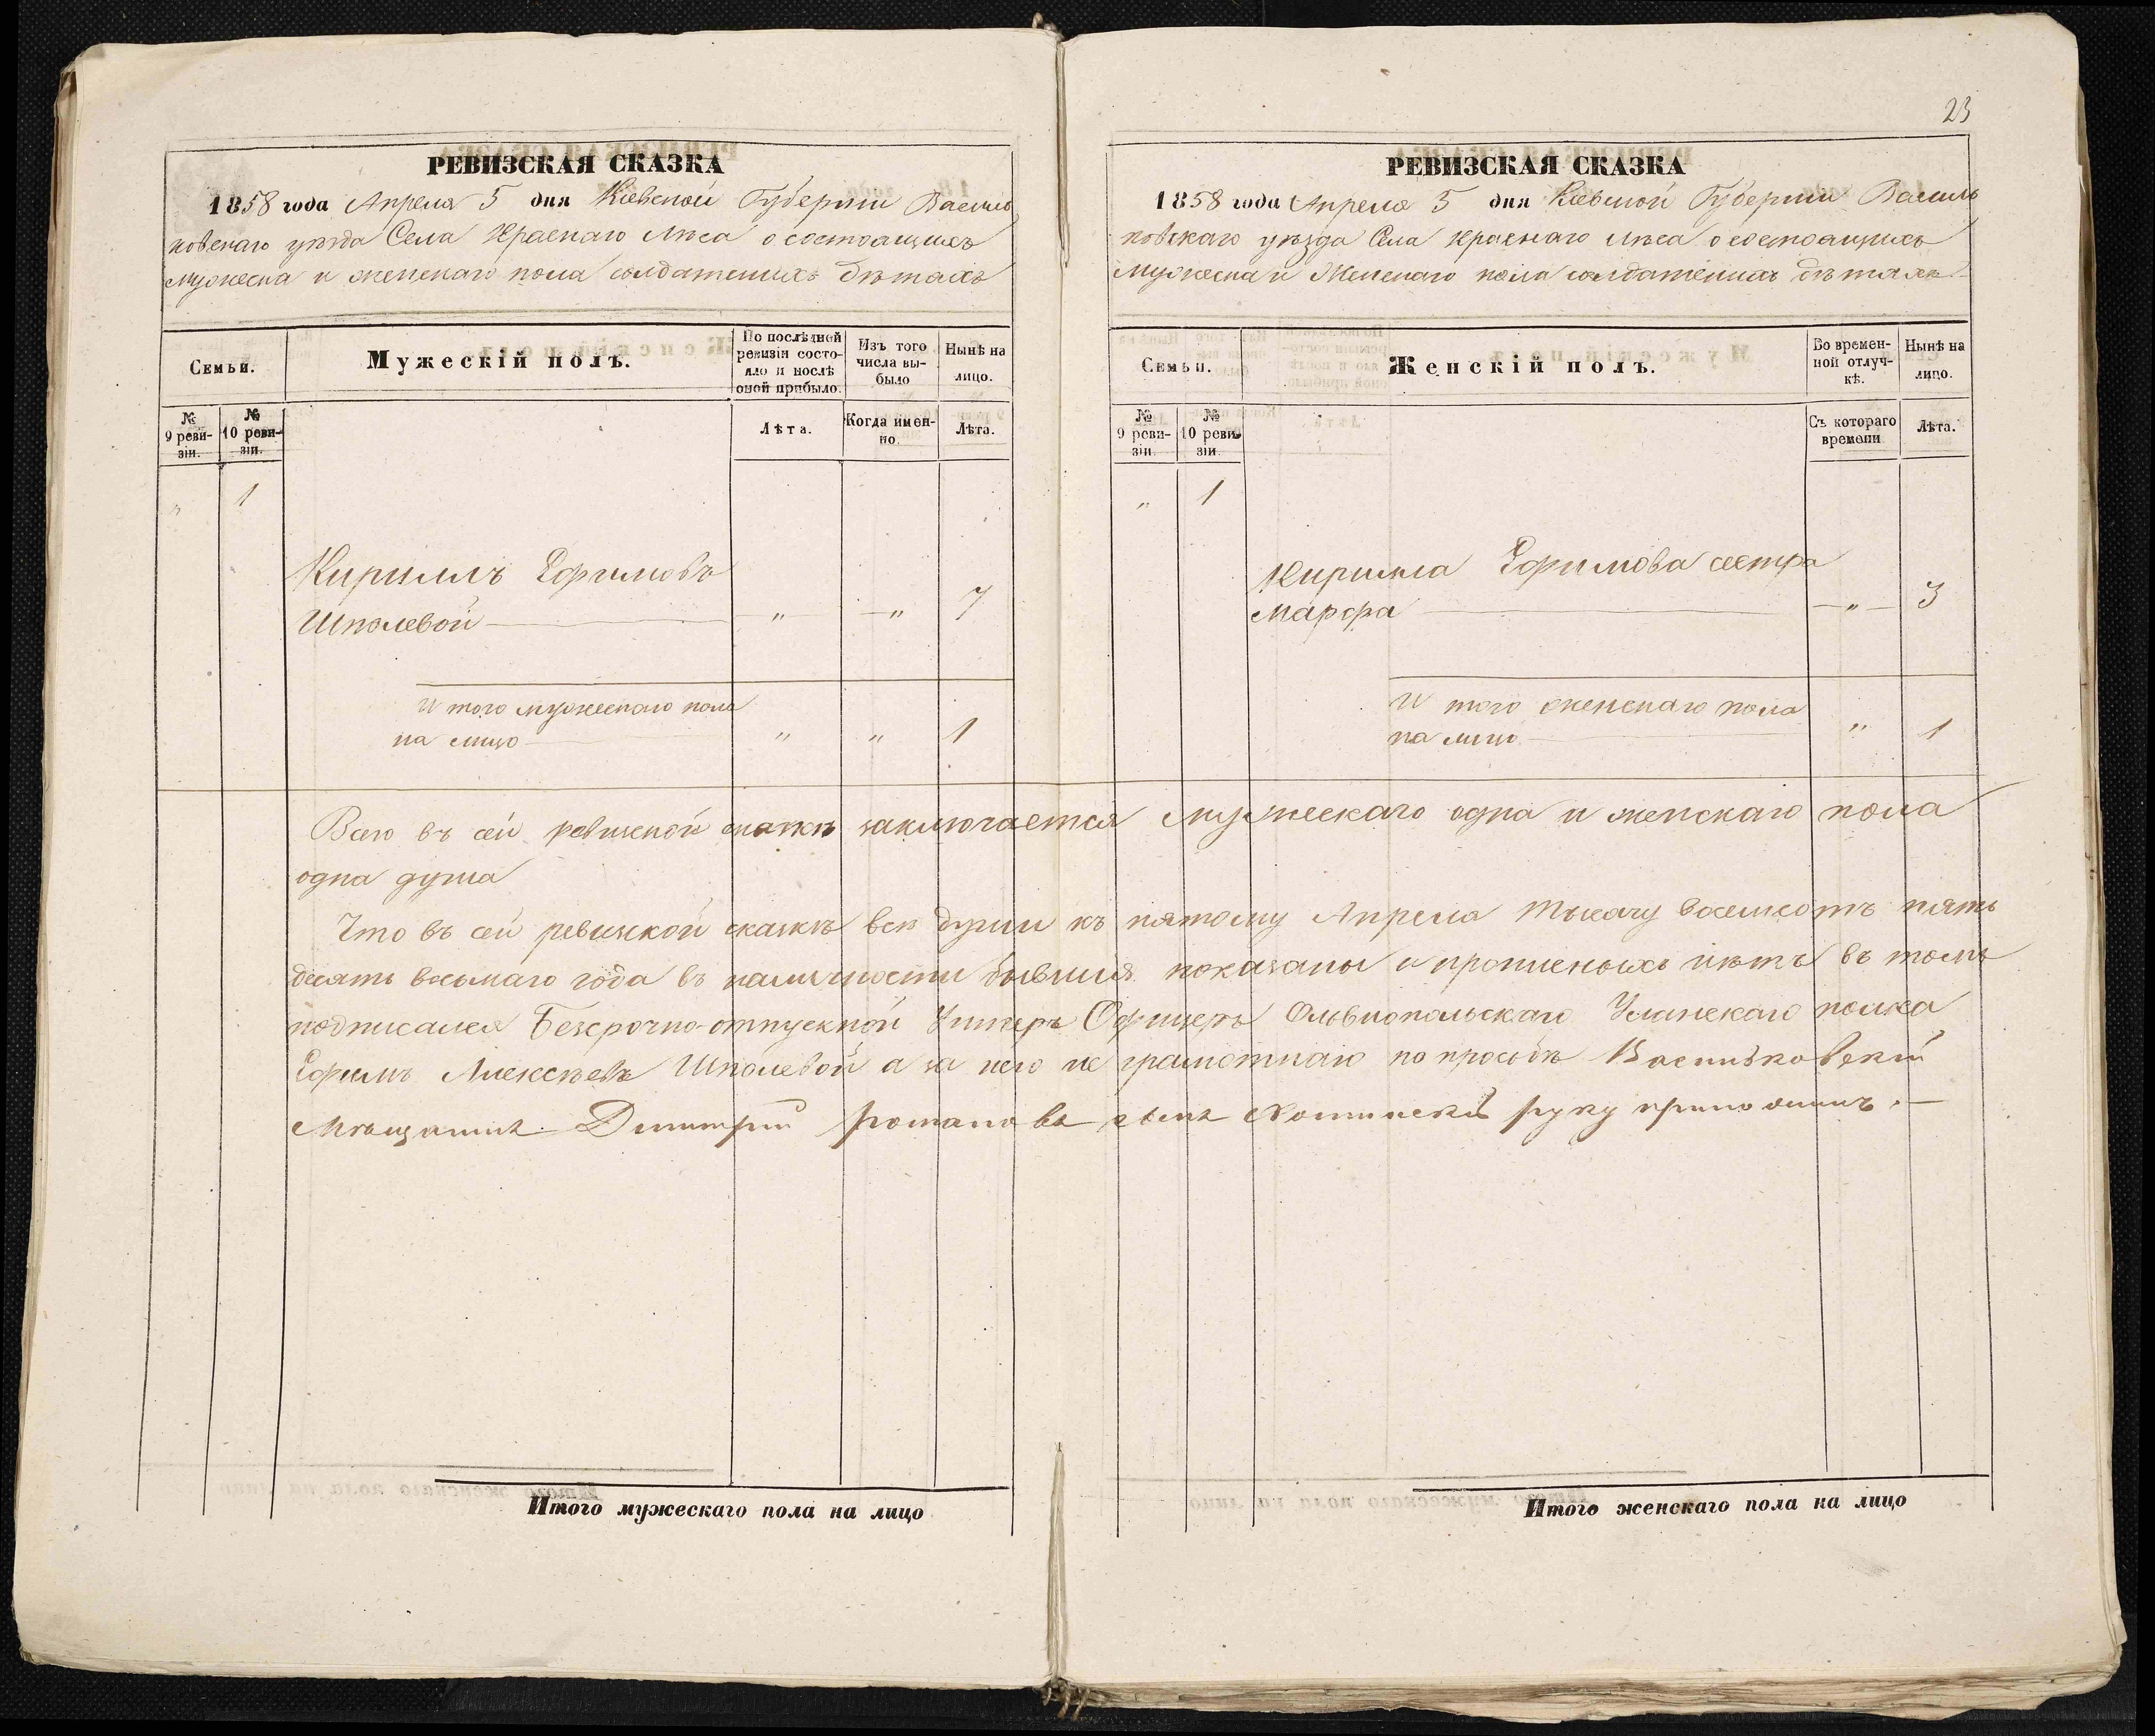 23
РЕВИЗСКАЯ СКАЗКА
1858 года Апреля 5 дня Кіевской Губерніи Василь
ковскаго уѣзда Села Краснаго Лѣса о состоящихъ
мужеска и женскаго пола солдатскихъ дѣтяхъ
Семьи.
Мужескій полъ.
По послѣдней ревизіи состо-
яло и послѣ оной прибыло.
Изъ того числа вы-
было
Нынѣ на лицо.
№ 9 реви-
зіи.
№ 10 реви-
зіи.
Лѣта.
Когда имен-
но.
Лѣта.
" 1
Кириллъ Ефимовъ
Шполевой " " 7
И того мужескаго пола
на лицо " " 1
РЕВИЗСКАЯ СКАЗКА
1858 года Апреля 5 дня Кіевской Губерніи Василь
ковскаго уѣзда Села Краснаго Лѣса о состоящихъ
Мужеска и Женскаго пола солдатскихъ дѣтяхъ
Семьи.
Женскій полъ.
Во времен-
ной отлуч-
кѣ.
Нынѣ на лицо.
№ 9 реви-
зіи.
№ 10 реви-
зіи.
Съ котораго времени
Лѣта.
" 1
Кирилла Ефимова сестра
Марфа " 3
И того женскаго пола
на лицо " 1
Всего въ сей ревизской сказкѣ заключается мужескаго одна и женскаго пола
одна душа
Что въ сей ревизской сказкѣ всѣ души къ пятому Апреля тысячу восемсотъ пять
десять восьмаго года въ наличности бывшія показаны и прописныхъ нѣтъ въ томъ
подписался Безсрочно-отпускной Унтеръ Офицеръ Ольвіопольскаго Уланскаго полка
Ефимъ Алексѣевъ Шполевой а за него не грамотнаго по просьбѣ Васильковскій
Мѣщанинъ Дмитрій Романовъ сынъ руку приложилъ.
Итого мужескаго пола на лицо
Итого женскаго пола на лицо